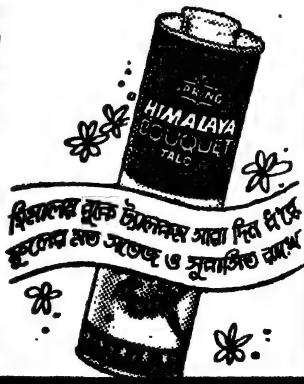 SPRING
HIMALAYA
BOUQUET
TALC
হিমালয় বুকে ট্যালকম সারা দিন ধরে
ফুলের মত সতেজ ও সুবাসিত রাখে